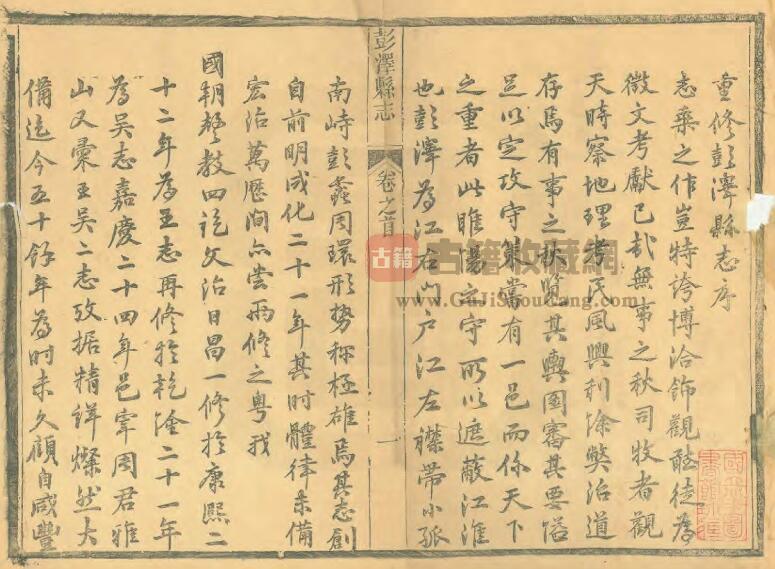 重修彭澤縣志序
志乘之作豈特誇博洽飾觀聽徒為
徵文考獻已哉無事之秋司牧者觀
天時察地理考民風興利除獘治道
存焉有事之秋覽其輿圖審其要隘
足以定攻守策嘗有一邑而係天下
之重者此睢陽之守所以遮蔽江淮
也彭澤為江右門户江左襟帶小孤
彭澤縣志
卷之首
一
南峙彭蠡周環形勢稱極雄焉其志創
自前明成化二十一年其时體律未備
宏治萬歷间亦嘗兩修之粵我
國朝聲教四訖文治日昌一修於康熙二
十二年為王志再修於乾隆二十一年
為吳志嘉慶二十四年邑宰周君雅
山又彙王吳二志攷据精詳燦然大
備迄今五十餘年為时未久顧自咸豐
古籍
古籍收藏網
www.GuJiShouCang.com